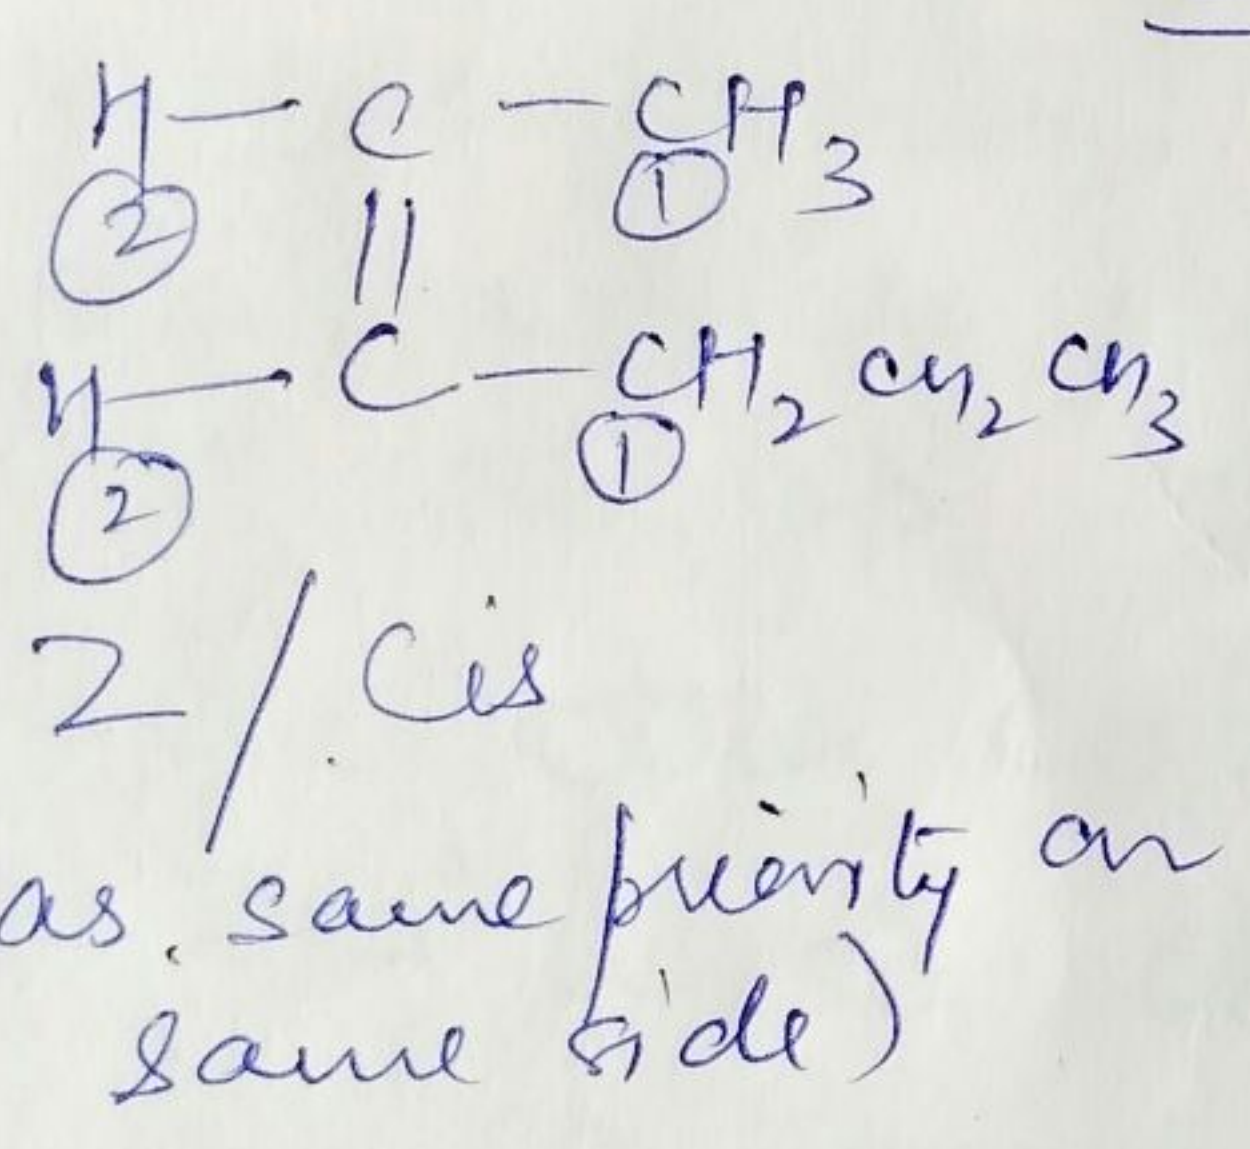 H — C — CH3
② ①
||
H — C — CH2 CH2 CH3
② ①
Z / Cis
as same priority on
same side)